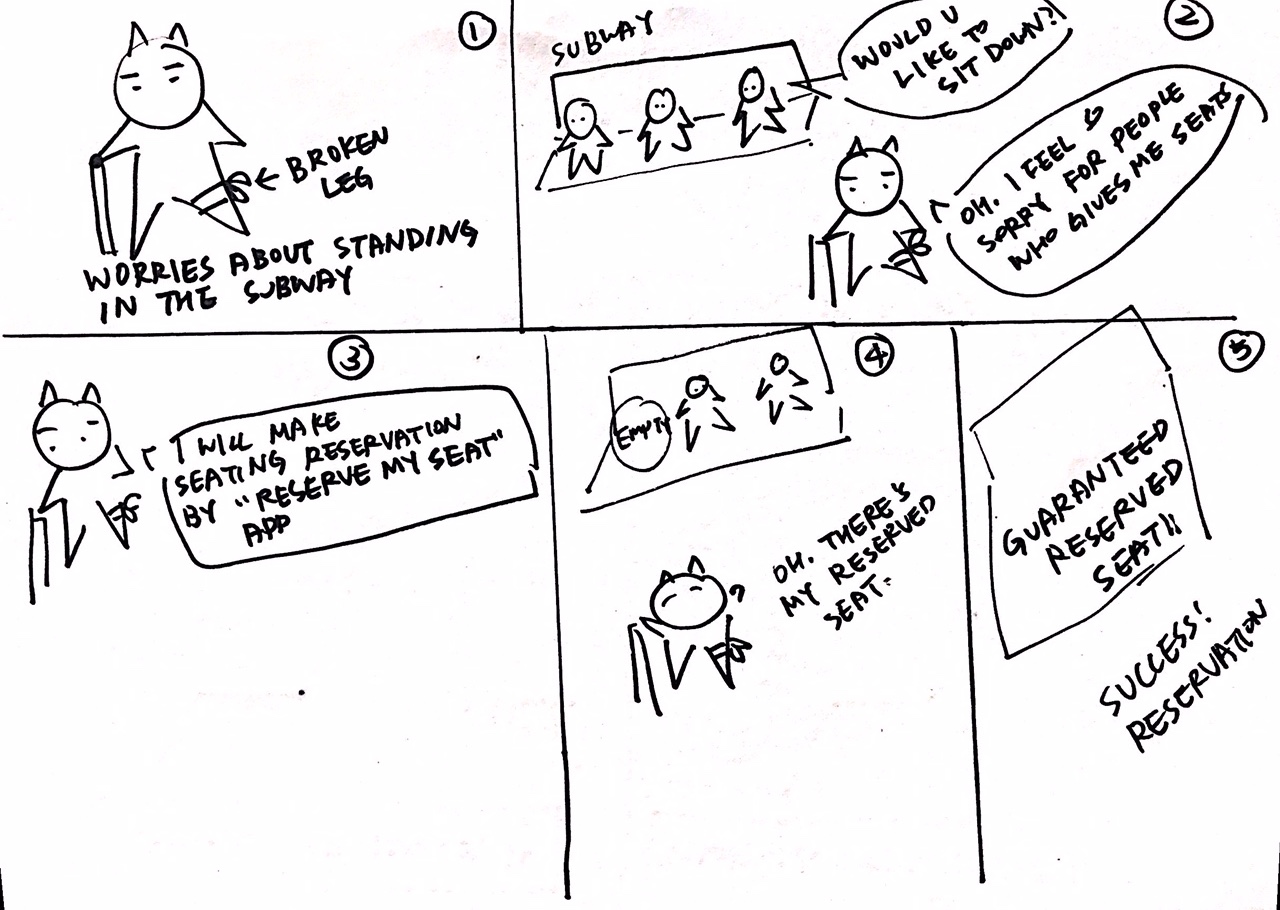 1
← BROKEN
LEG
WORRIES ABOUT STANDING
IN THE SUBWAY
2
SUBWAY
WOULD U
LIKE TO
SIT DOWN?!
OH. I FEEL SO
SORRY FOR PEOPLE
WHO GIVES ME SEATS
3
I WILL MAKE
SEATING RESERVATION
BY "RESERVE MY SEAT"
APP
4
EMPTY
OH. THERE'S
MY RESERVED
SEAT.
5
GUARANTEED
RESERVED
SEAT!!
SUCCESS!
RESERVATION